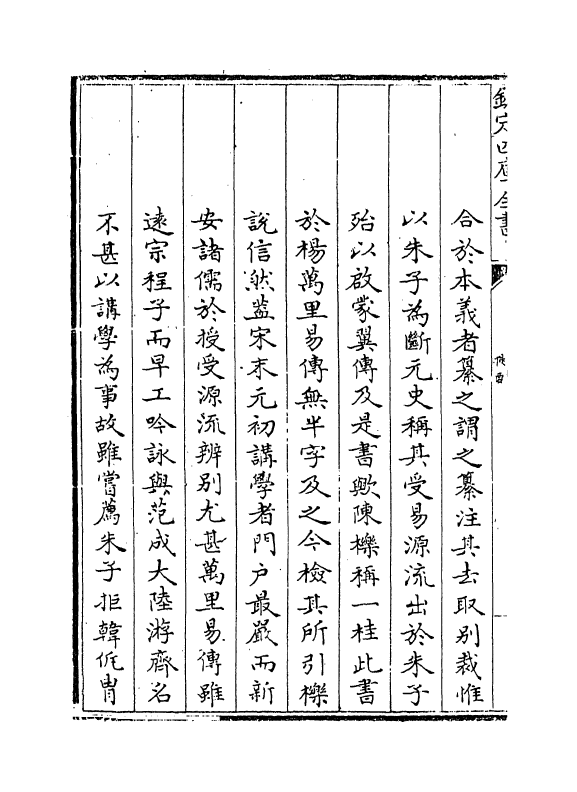 欽定四庫全書
合於本義者纂之謂之纂注其去取别裁惟
以朱子為斷元史稱其受易源流出於朱子
殆以啟蒙翼傳及是書歟陳櫟稱一桂此書
於楊萬里易傳無半字及之今檢其所引櫟
說信然葢宋末元初講學者門户最嚴而新
安諸儒於授受源流辨别尤甚萬里易傳雖
遠宗程子而早工吟詠與范成大陸游齊名
不甚以講學為事故雖嘗薦朱子拒韓侂胄